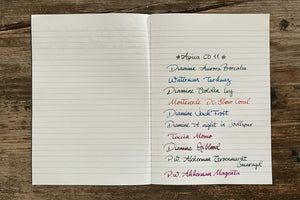 *Apica CD 11*
Diamine Aurora Borealis
Waterman Turkuaz
Diamine Golden Ivy
Monteverde Dc Show Coral
Diamine Jack Frost
Diamine A night in Jodhpur
Taccia Momo
Diamine Oxblood
P.W. Akkerman Groenmarkt
Smaragd
P.W. Akkerman Magenta